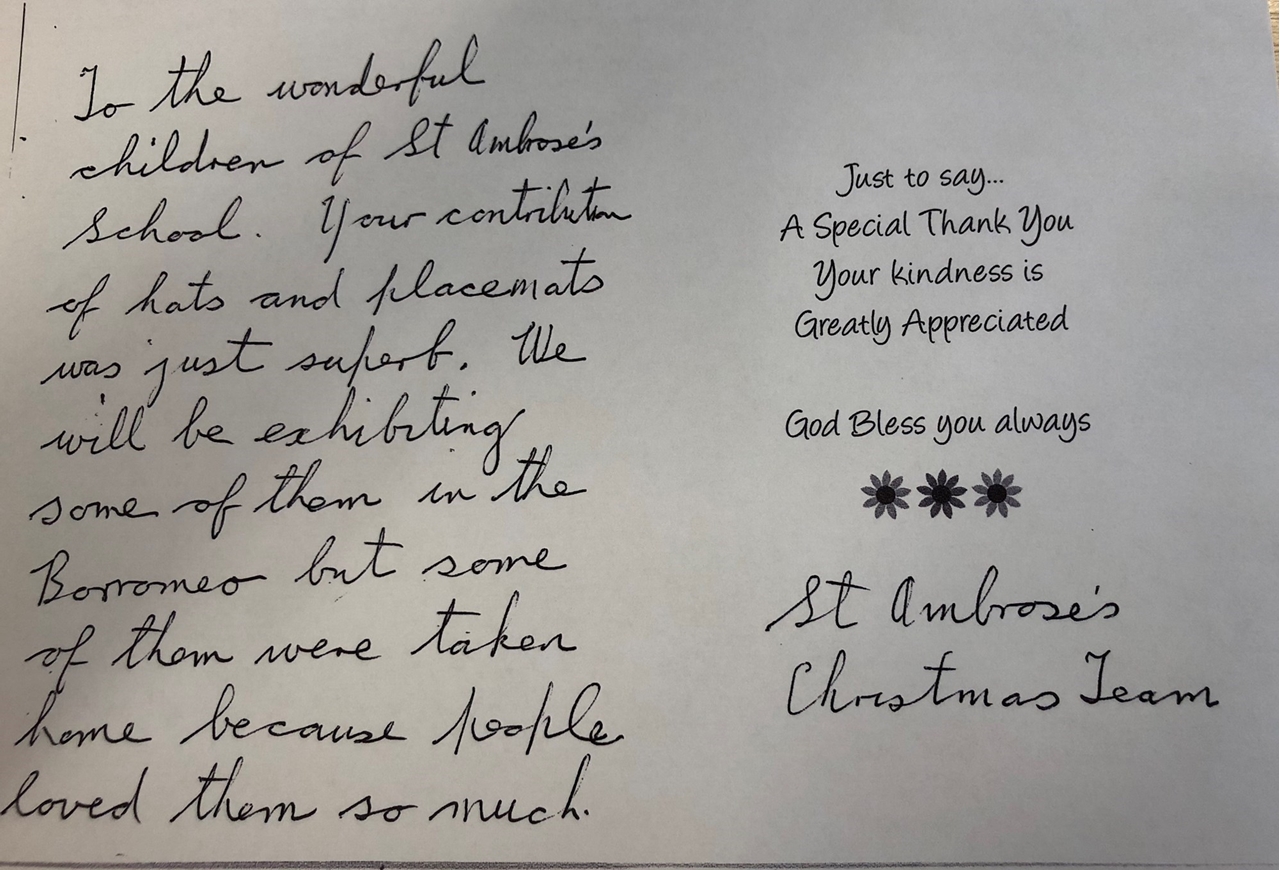 To the wonderful
children of St Ambrose's
School. Your contribution
of hats and placemats
was just superb. We
will be exhibiting
some of them in the
Borromeo but some
of them were taken
home because people
loved them so much.
Just to say...
A Special Thank You
Your kindness is
Greatly Appreciated
God Bless you always
St Ambrose's
Christmas Team